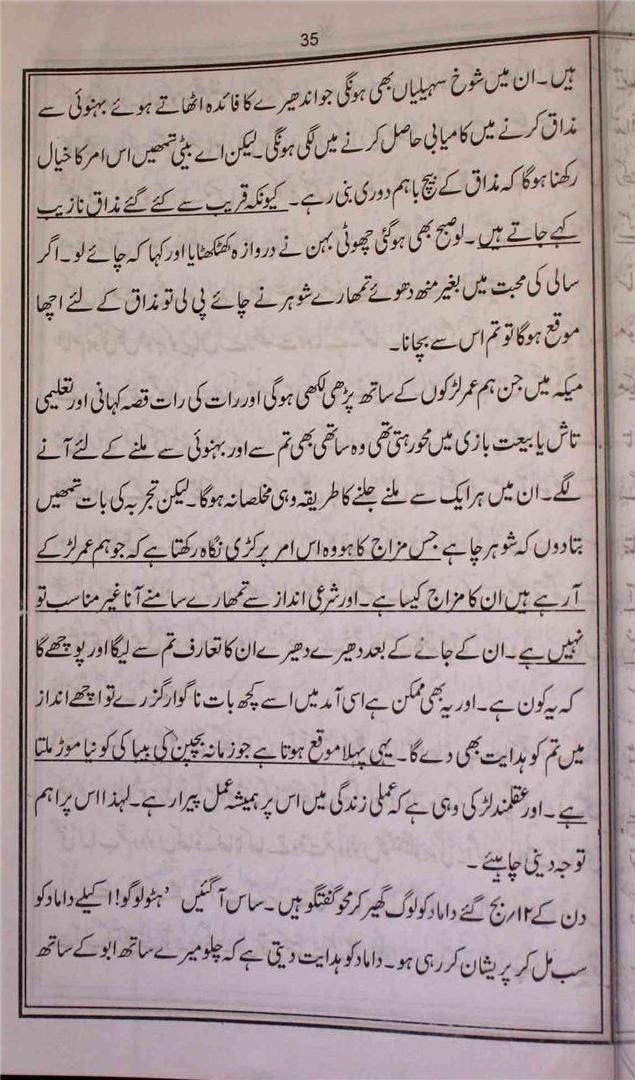 35
ہیں۔ان میں شوخ سہیلیاں بھی ہونگی جو اندھیرے کا فائدہ اٹھاتے ہوئے بہنوئی سے
مذاق کرنے میں کامیابی حاصل کرنے میں لگی ہونگی۔لیکن اے بیٹی تمھیں اس امر کا خیال
رکھنا ہوگا کہ مذاق کے بیچ باہم دوری بنی رہے۔ کیونکہ قریب سے کئے گئے مذاق نازیب
کہے جاتے ہیں۔لو صبح بھی ہوگئی چھوٹی بہن نے دروازہ کھٹکھٹایا اور کہا کہ چائے لو۔اگر
سالی کی محبت میں بغیر منھ دھوئے تمھارے شوہر نے چائے پی لی تو مذاق کے لئے اچھا
موقع ہوگا تو تم اس سے بچانا۔
میکہ میں جن ہم عمر لڑکوں کے ساتھ پڑھی لکھی ہوگی اور رات کی رات قصہ کہانی اور تعلیمی
تاش یا بیعت بازی میں محو رہتی تھی وہ ساتھی بھی تم سے اور بہنوئی سے ملنے کے لئے آنے
لگے۔ان میں ہر ایک سے ملنے جلنے کا طریقہ وہی مخلصانہ ہوگا۔لیکن تجربہ کی بات تمھیں
بتادوں کہ شوہر چاہے جس مزاج کا ہو وہ اس امر پر کڑی نگاہ رکھتا ہے کہ جو ہم عمر لڑکے
آرہے ہیں ان کا مزاج کیسا ہے۔اور شرعی انداز سے تمھارے سامنے آنا غیر مناسب تو
نہیں ہے۔ان کے جانے کے بعد دھیرے دھیرے ان کا تعارف تم سے لیگا اور پوچھے گا
کہ یہ کون ہے۔اور یہ بھی ممکن ہے اسی آمد میں اسے کچھ بات ناگوار گزرے تو اچھے انداز
میں تم کو ہدایت بھی دے گا۔ یہی پہلا موقع ہوتا ہے جو زمانہ بچپن کی بیباکی کو نیا موڑ ملتا
ہے۔اور عقلمند لڑکی وہی ہے کہ عملی زندگی میں اس پر ہمیشہ عمل پیرا رہے۔لہٰذا اس پر اہم
توجہ دینی چاہیئے۔
دن کے ۱۲؍ بج گئے داماد کو لوگ گھیر کر محو گفتگو ہیں۔ساس آگئیں ’ہٹو لوگو! اکیلے داماد کو
سب مل کر پریشان کر رہی ہو۔داماد کو ہدایت دیتی ہے کہ چلو میرے ساتھ ابو کے ساتھ